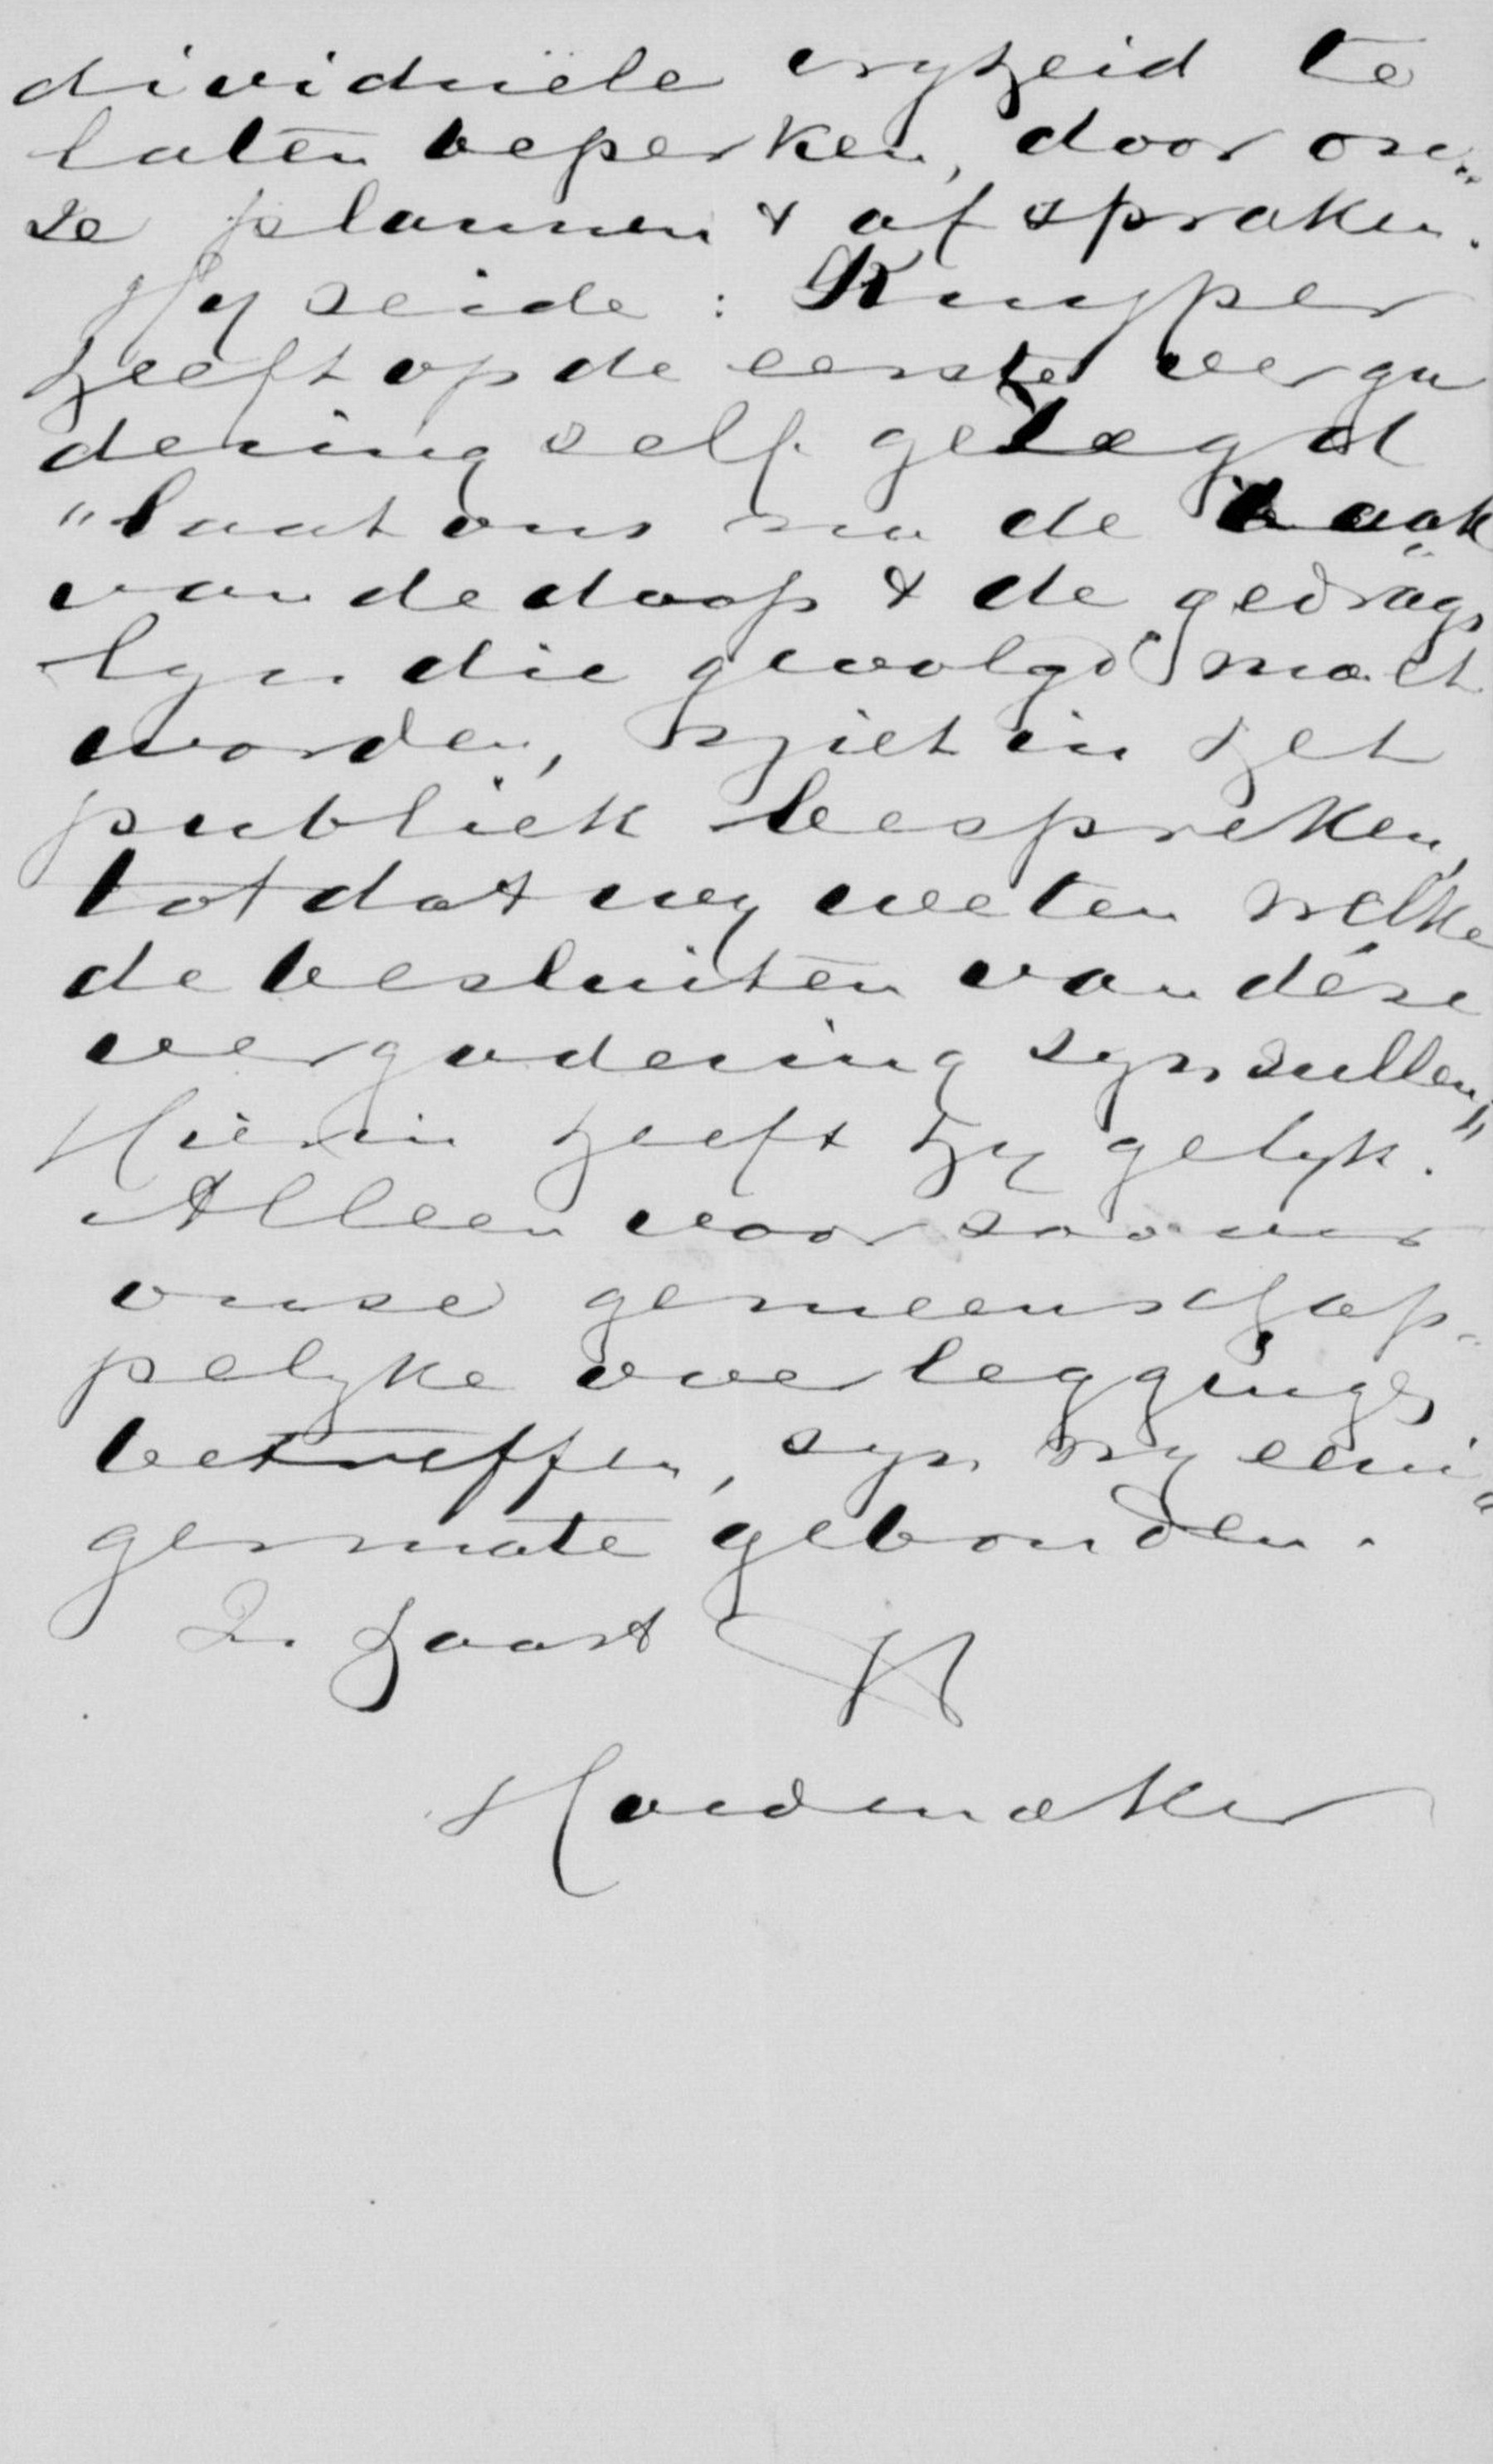 dividuëele vryheid te
laten beperken, door on„
ze plannen & afspraken.
Hy zeide: Kuyper
heeft op de eerste verga
dering zelf gezegd
"laat ons nu de zaak
van de doop & de gedrags
lyn die gevolgd moet
worden, niet in het
publiek bespreken,
totdat wy weten welke
de besluiten van déze
vergadering zyn zullen,"
Hierin heeft hy gelyk.
Alleen voor zoover
onze gemeenschap-
pelyke overleggings
betreffen, zyn wy eeni„
germate gebonden.
In haast
Hoedemaker